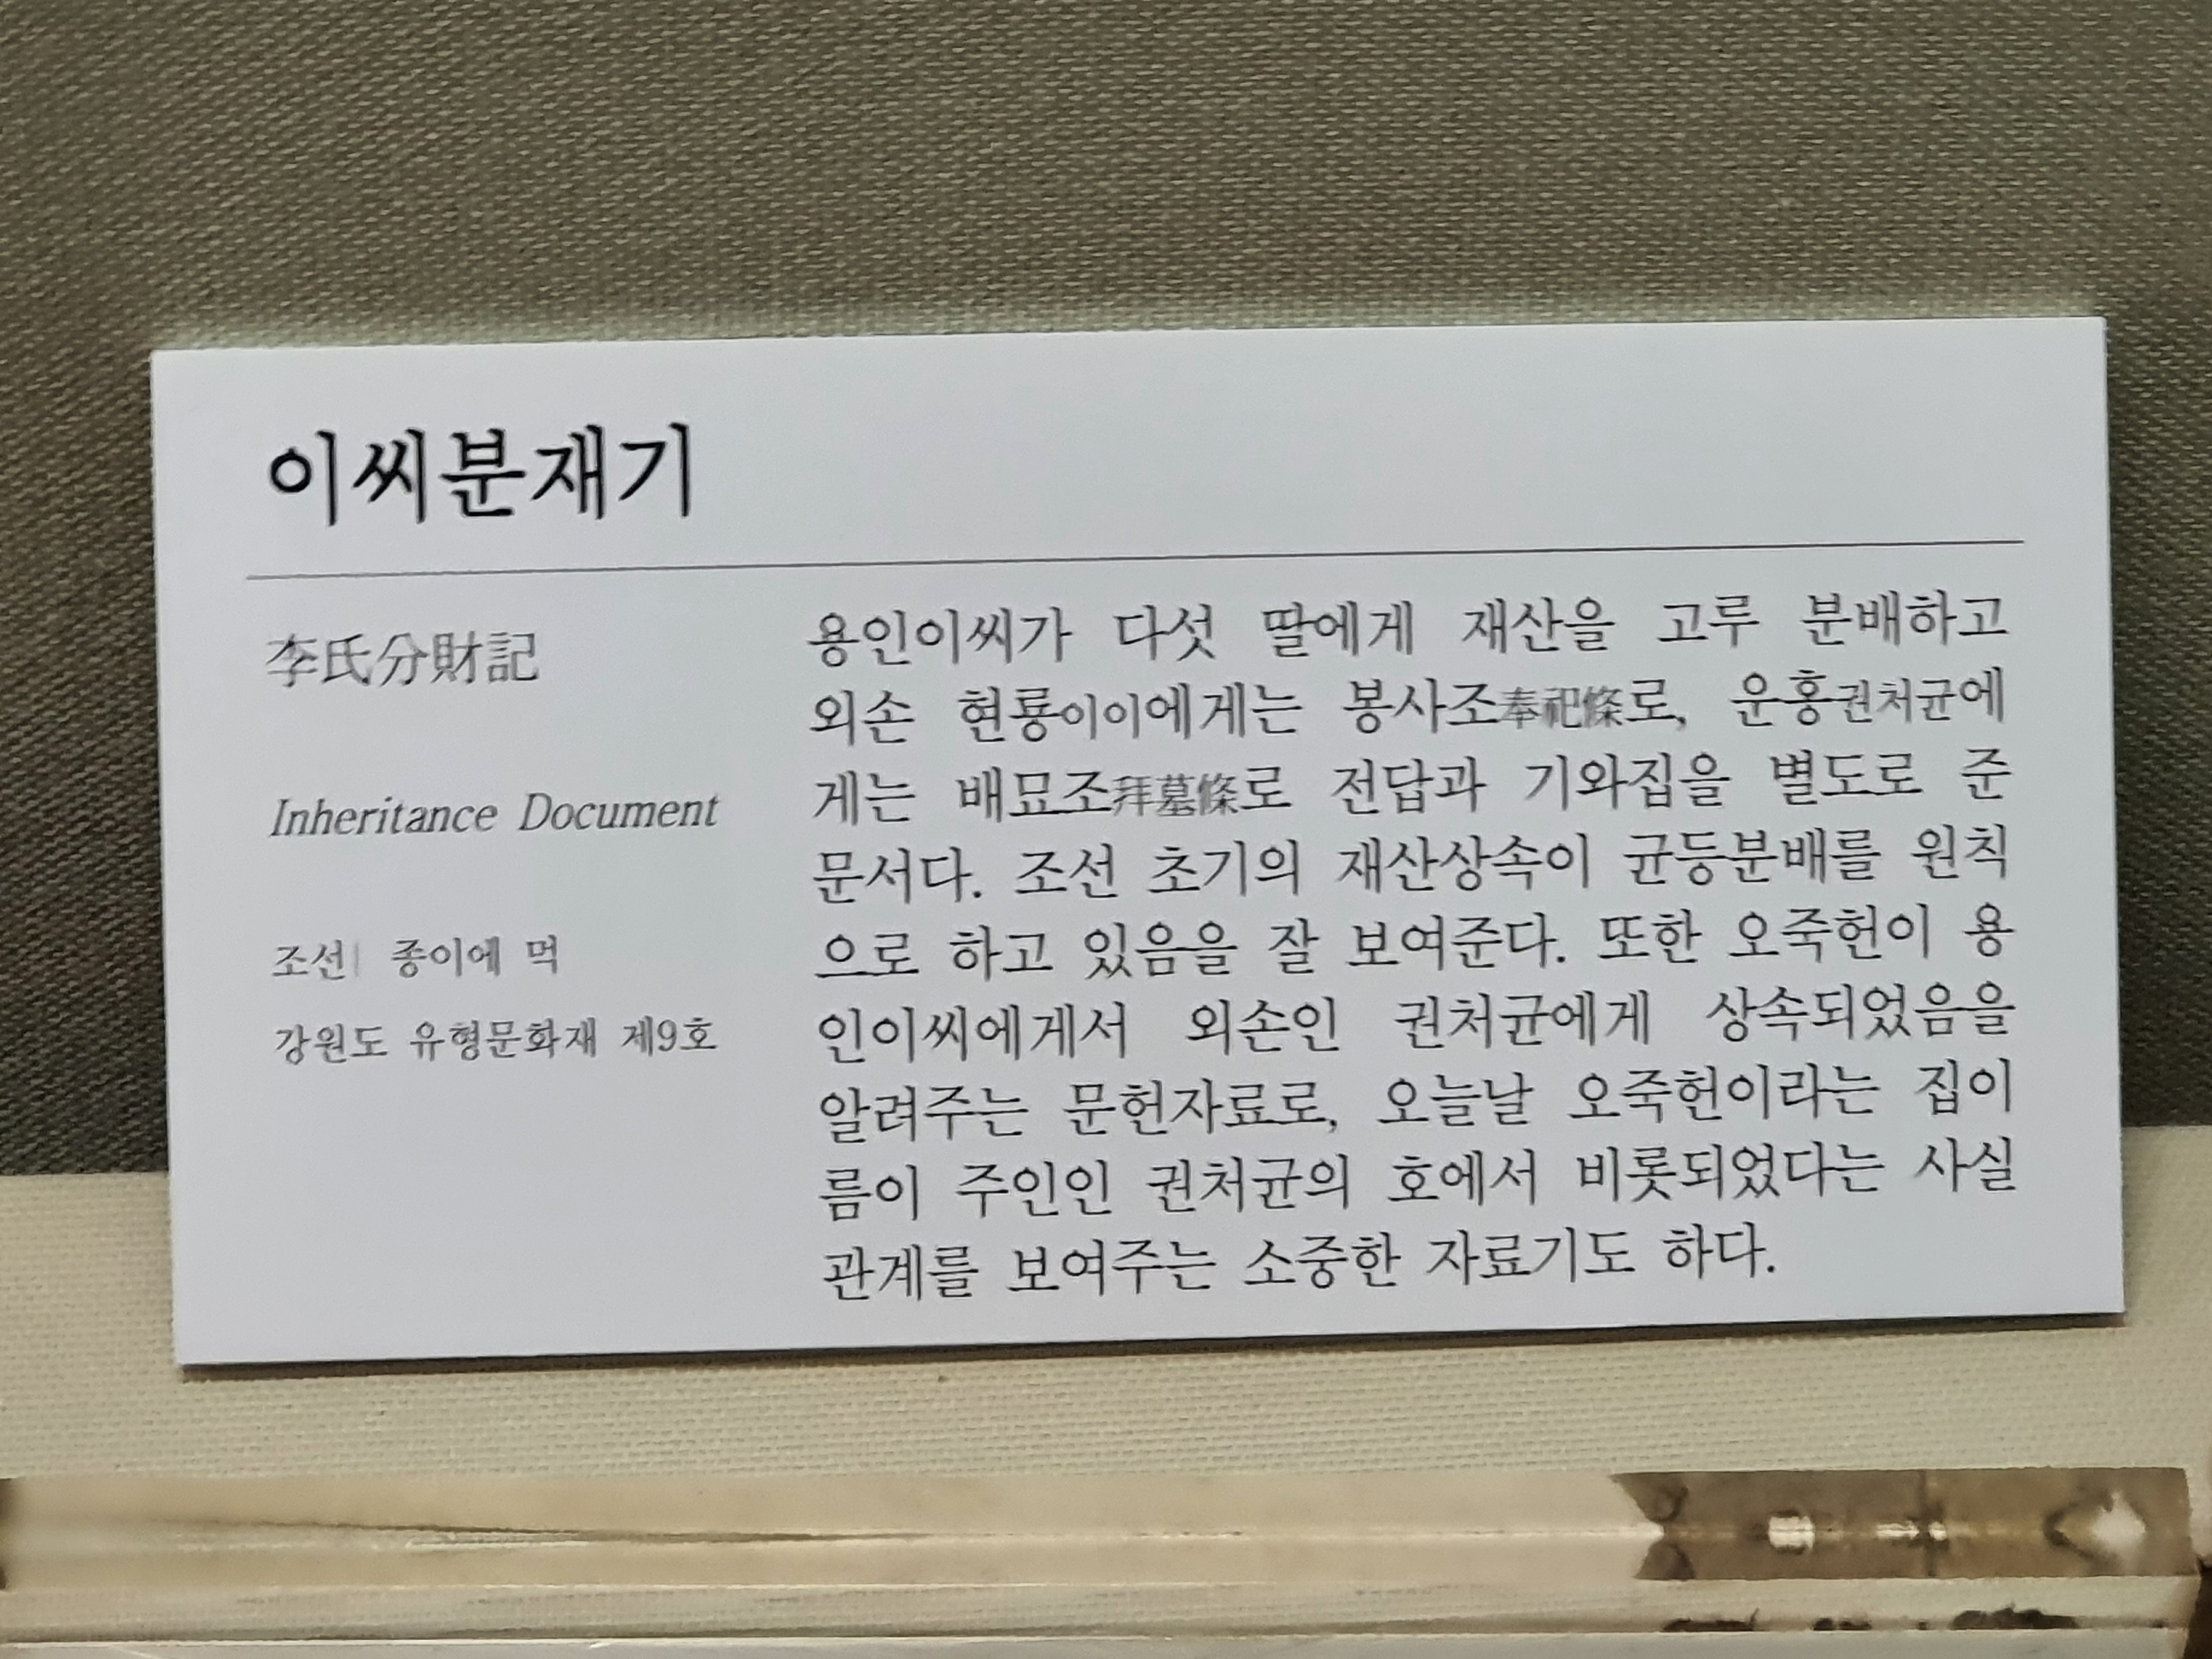 이씨분재기
李氏分財記
Inheritance Document
조선| 종이에 먹
강원도 유형문화재 제9호
용인이씨가 다섯 딸에게 재산을 고루 분배하고
외손 현룡이이에게는 봉사조奉祀條로, 운홍권처균에
게는 배묘조拜墓條로 전답과 기와집을 별도로 준
문서다. 조선 초기의 재산상속이 균등분배를 원칙
으로 하고 있음을 잘 보여준다. 또한 오죽헌이 용
인이씨에게서 외손인 권처균에게 상속되었음을
알려주는 문헌자료로, 오늘날 오죽헌이라는 집이
름이 주인인 권처균의 호에서 비롯되었다는 사실
관계를 보여주는 소중한 자료기도 하다.